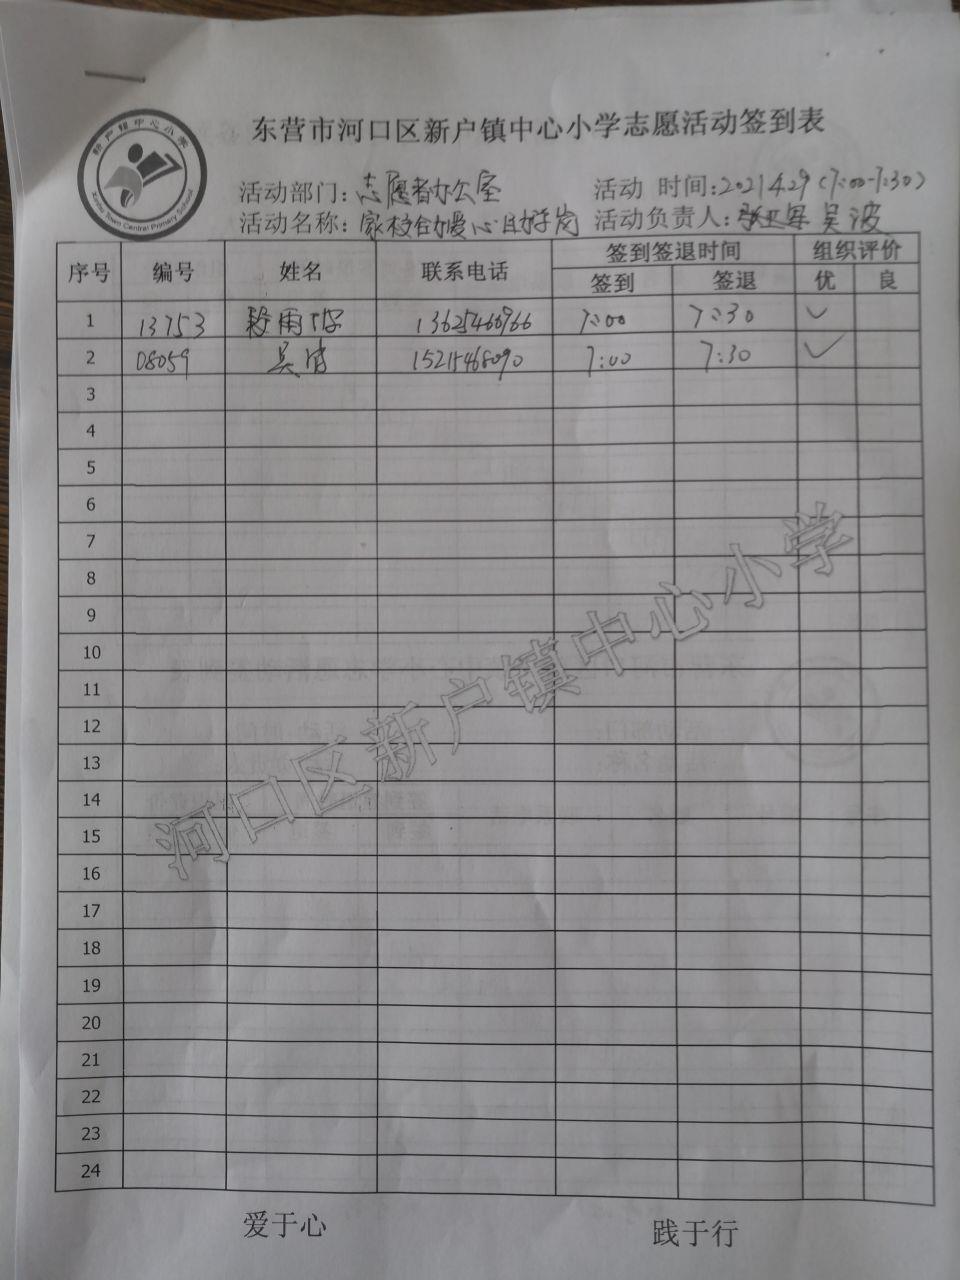 新户镇中心小学
Xinhu Town Central Primary School
东营市河口区新户镇中心小学志愿活动签到表
活动部门：志愿者办公室 活动 时间：2021.4.29（7:00-7:30）
活动名称：家校合力爱心助导岗 活动负责人：吴波
序号 编号 姓名 联系电话 签到签退时间 组织评价
签到 签退 优 良
1 13753 段雨 13625460966 7:00 7:30 ✓
2 08059 吴波 15215468090 7:00 7:30 ✓
3
4
5
6
7
8
9
10
11
12
13
14
15
16
17
18
19
20
21
22
23
24
河口区新户镇中心小学
爱于心 践于行